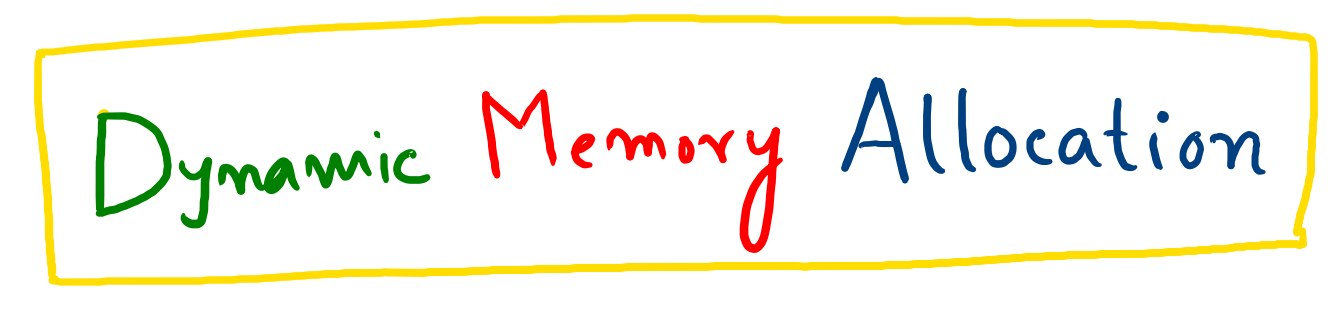 Dynamic Memory Allocation